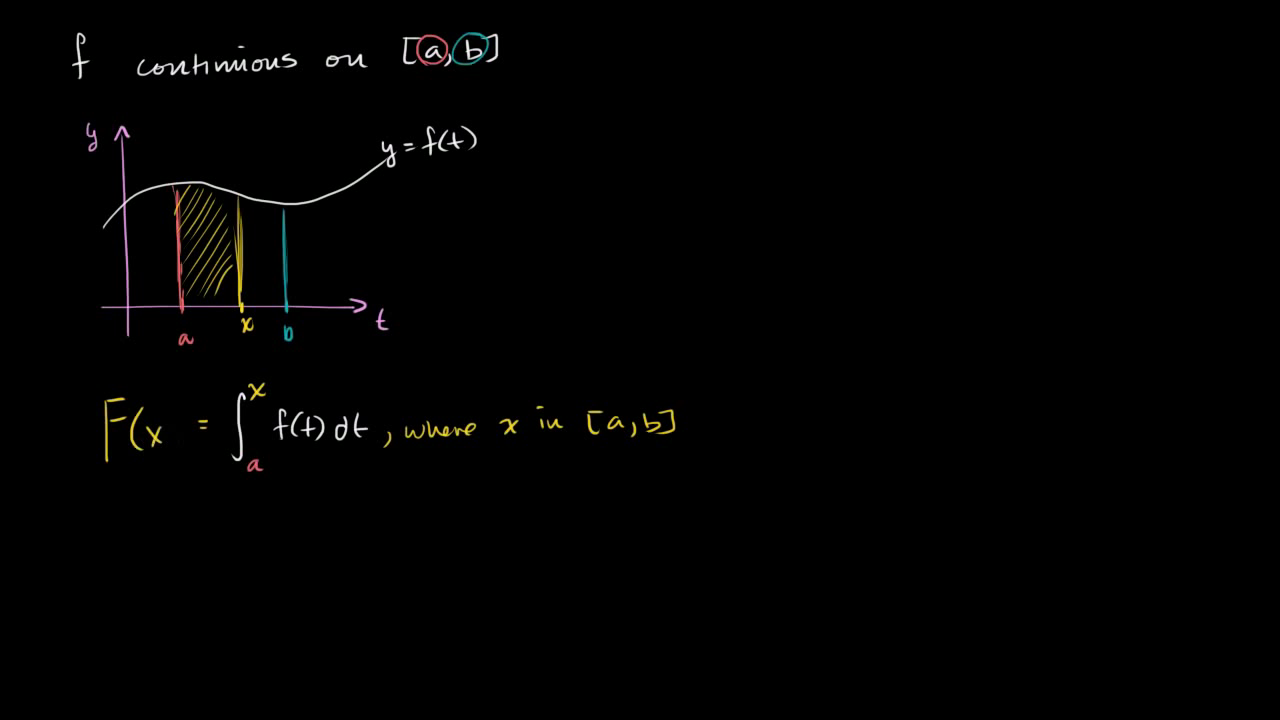 f continuous on [a, b]
y
y = f(t)
a x b t
F(x = ∫ₐˣ f(t) dt, where x in [a, b]